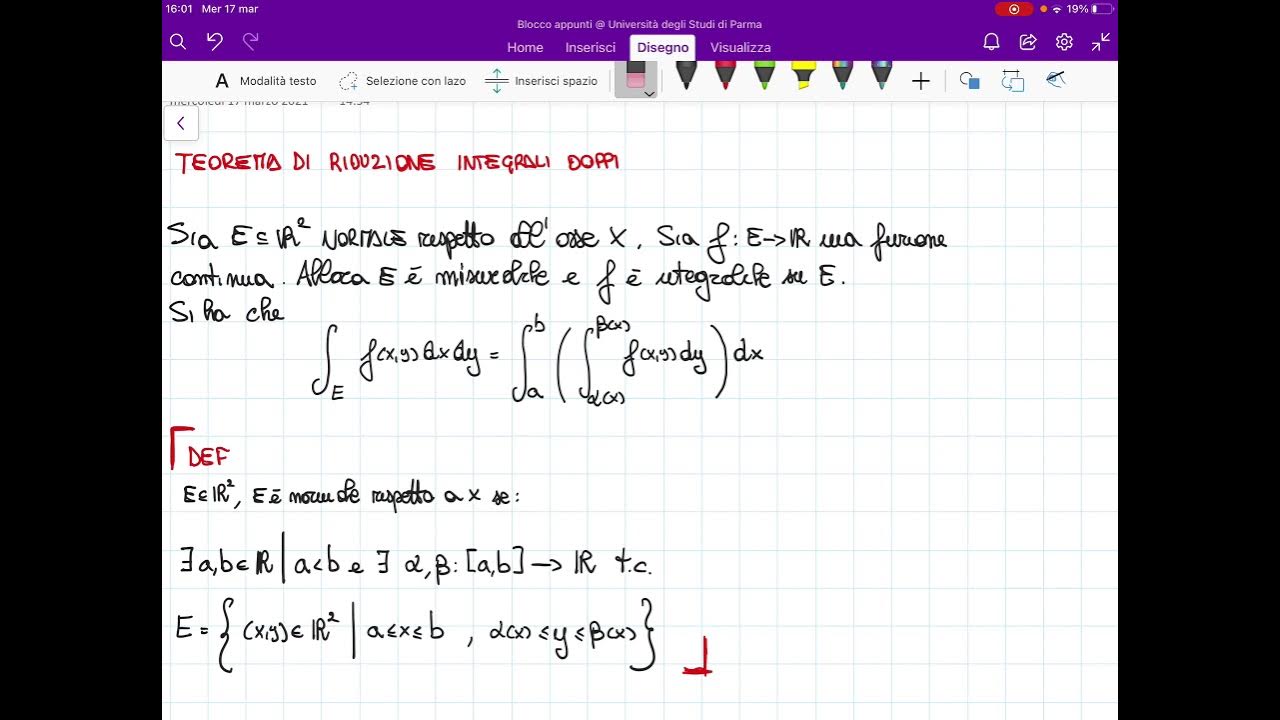 16:01 Mer 17 mar
19%
Blocco appunti @ Università degli Studi di Parma
Home Inserisci Disegno Visualizza
A Modalità testo Selezione con lazo Inserisci spazio
mercoledì 17 marzo 2021 14:54
TEOREMA DI RIDUZIONE INTEGRALI DOPPI
Sia E ⊆ ℝ² NORMALE rispetto all'asse X. Sia f: E→ℝ una funzione
continua. Allora E è misurabile e f è integrabile su E.
Si ha che
∫_E f(x,y) dx dy = ∫_a^b ( ∫_{α(x)}^{β(x)} f(x,y) dy ) dx
DEF
E ⊂ ℝ², E è normale rispetto a x se:
∃ a,b ∈ ℝ | a<b e ∃ α,β: [a,b] → ℝ t.c.
E = { (x,y) ∈ ℝ² | a≤x≤b , α(x) ≤ y ≤ β(x) }